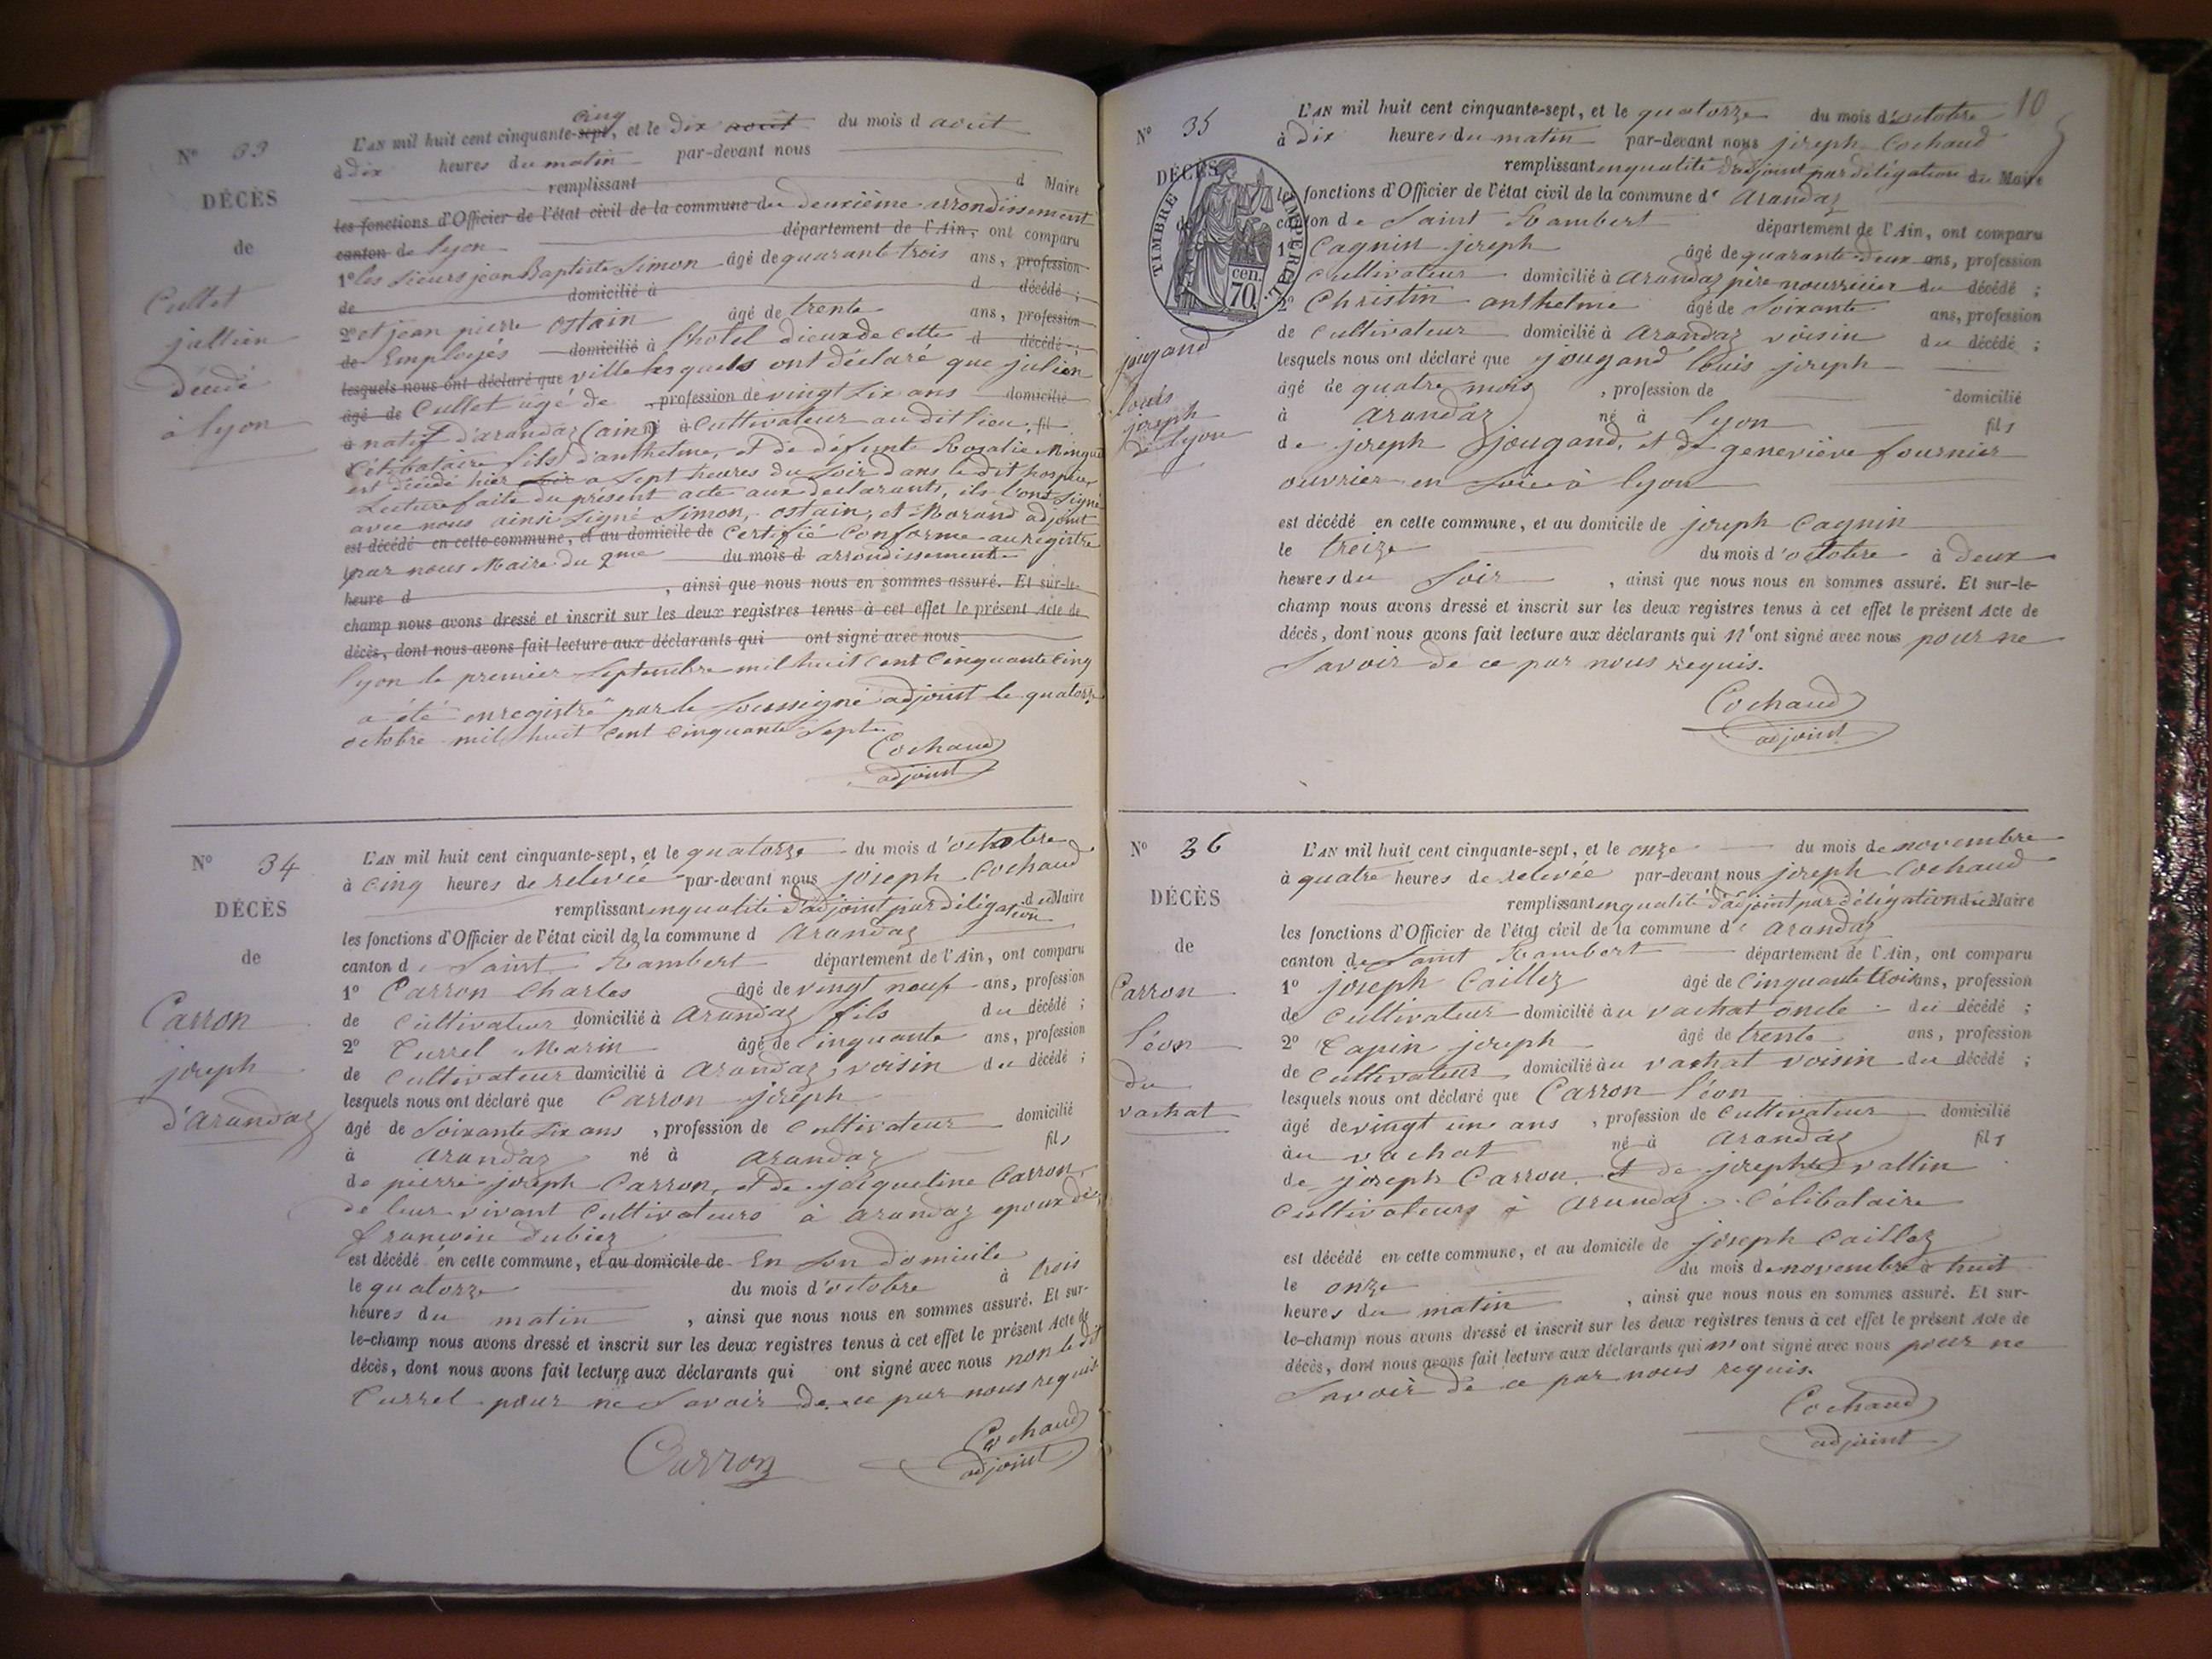 N° 33
DÉCÈS
de
Cullet
jullien
décédé
à lyon
cinq
L'AN mil huit cent cinquante-sept, et le dix aout du mois d aout
à dix heures du matin par-devant nous
remplissant d Maire
les fonctions d'Officier de l'état civil de la commune du deuxième arrondissement
canton de lyon département de l'Ain, ont comparu
1° les sieurs jean Baptiste Simon âgé de quarante trois ans, profession
de domicilié à d décédé ;
2° et jean pierre ostain âgé de trente ans, profession
de Employés domicilié à l'hotel dieu de cette d décédé ;
lesquels nous ont déclaré que ville lesquels ont déclaré que julien
âgé de Cullet âgé de profession de vingt six ans domicilié
à natif d'arandaz (ain) né à Cultivateur au dit lieu, fil
Célibataire fils d'anthelme, et de défunte Rosalie Minguet
est décédé hier soir a sept heures du soir dans le dit hospice
Lecture faite du présent acte aux déclarants, ils l'ont signé
avec nous ainsi signé Simon, ostain, et Morand adjoint
est décédé en cette commune, et au domicile de Certifié Conforme au registre
par nous Maire du 2me du mois d arrondissement
heure d , ainsi que nous nous en sommes assuré. Et sur-le-
champ nous avons dressé et inscrit sur les deux registres tenus à cet effet le présent Acte de
décès, dont nous avons fait lecture aux déclarants qui ont signé avec nous
lyon le premier septembre mil huit cent cinquante cinq
a été enregistré par le soussigné adjoint le quatorze
octobre mil huit cent cinquante sept
Cochaud
adjoint
N° 34
DÉCÈS
de
Carron
joseph
d'Arandaz
L'AN mil huit cent cinquante-sept, et le quatorze du mois d'octobre
à cinq heures de relevée par-devant nous joseph Cochaud
remplissant en qualité d'adjoint par délégation du Maire
les fonctions d'Officier de l'état civil de la commune d Arandaz
canton de Saint Rambert département de l'Ain, ont comparu
1° Carron Charles âgé de vingt neuf ans, profession
de Cultivateur domicilié à Arandaz fils du décédé ;
2° Currel Marin âgé de Cinquante ans, profession
de Cultivateur domicilié à Arandaz, voisin du décédé ;
lesquels nous ont déclaré que Carron joseph
âgé de soixante six ans , profession de Cultivateur domicilié
à Arandaz né à Arandaz fils
de pierre joseph Carron, et de jacqueline Carron,
de leur vivant Cultivateurs à Arandaz epoux de
françoise Dubiez
est décédé en cette commune, et au domicile de En son domicile
le quatorze du mois d'octobre à trois
heures du matin , ainsi que nous nous en sommes assuré. Et sur-
le-champ nous avons dressé et inscrit sur les deux registres tenus à cet effet le présent Acte de
décès, dont nous avons fait lecture aux déclarants qui ont signé avec nous non le dit
Currel pour ne savoir de ce par nous requis
Carron
Cochaud
adjoint
10
N° 35
DÉCÈS
TIMBRE IMPERIAL
70 cen.
jougand
louis
joseph
de lyon
L'AN mil huit cent cinquante-sept, et le quatorze du mois d'octobre
à dix heures du matin par-devant nous joseph Cochaud
remplissant en qualité d'adjoint par délégation du Maire
les fonctions d'Officier de l'état civil de la commune d' Arandaz
canton de Saint Rambert département de l'Ain, ont comparu
1° Cagnin joseph âgé de quarante deux ans, profession
de Cultivateur domicilié à Arandaz père nourricier du décédé ;
2° Christin anthelme âgé de soixante ans, profession
de Cultivateur domicilié à Arandaz voisin du décédé ;
lesquels nous ont déclaré que jougand louis joseph
âgé de quatre mois , profession de domicilié
à Arandaz né à lyon fils
de joseph jougand, et de geneviève fournier
ouvrier en soie à lyon
est décédé en cette commune, et au domicile de joseph Cagnin
le treize du mois d'octobre à deux
heures du soir , ainsi que nous nous en sommes assuré. Et sur-le-
champ nous avons dressé et inscrit sur les deux registres tenus à cet effet le présent Acte de
décès, dont nous avons fait lecture aux déclarants qui n'ont signé avec nous pour ne
savoir de ce par nous requis.
Cochaud
adjoint
N° 36
DÉCÈS
de
Carron
léon
du
vachat
L'AN mil huit cent cinquante-sept, et le onze du mois de novembre
à quatre heures de relevée par-devant nous joseph Cochaud
remplissant en qualité d'adjoint par délégation du Maire
les fonctions d'Officier de l'état civil de la commune d' Arandaz
canton de Saint Rambert département de l'Ain, ont comparu
1° joseph Caillez âgé de Cinquante trois ans, profession
de Cultivateur domicilié au vachat oncle du décédé ;
2° Tapin joseph âgé de trente ans, profession
de Cultivateur domicilié au vachat voisin du décédé ;
lesquels nous ont déclaré que Carron léon
âgé de vingt un ans , profession de Cultivateur domicilié
au vachat né à Arandaz fils
de joseph Carron et de josephte vallin
Cultivateurs à Arandaz. Célibataire
est décédé en cette commune, et au domicile de joseph Caillez
le onze du mois de novembre à huit
heures du matin , ainsi que nous nous en sommes assuré. Et sur-
le-champ nous avons dressé et inscrit sur les deux registres tenus à cet effet le présent Acte de
décès, dont nous avons fait lecture aux déclarants qui n'ont signé avec nous pour ne
savoir de ce par nous requis.
Cochaud
adjoint